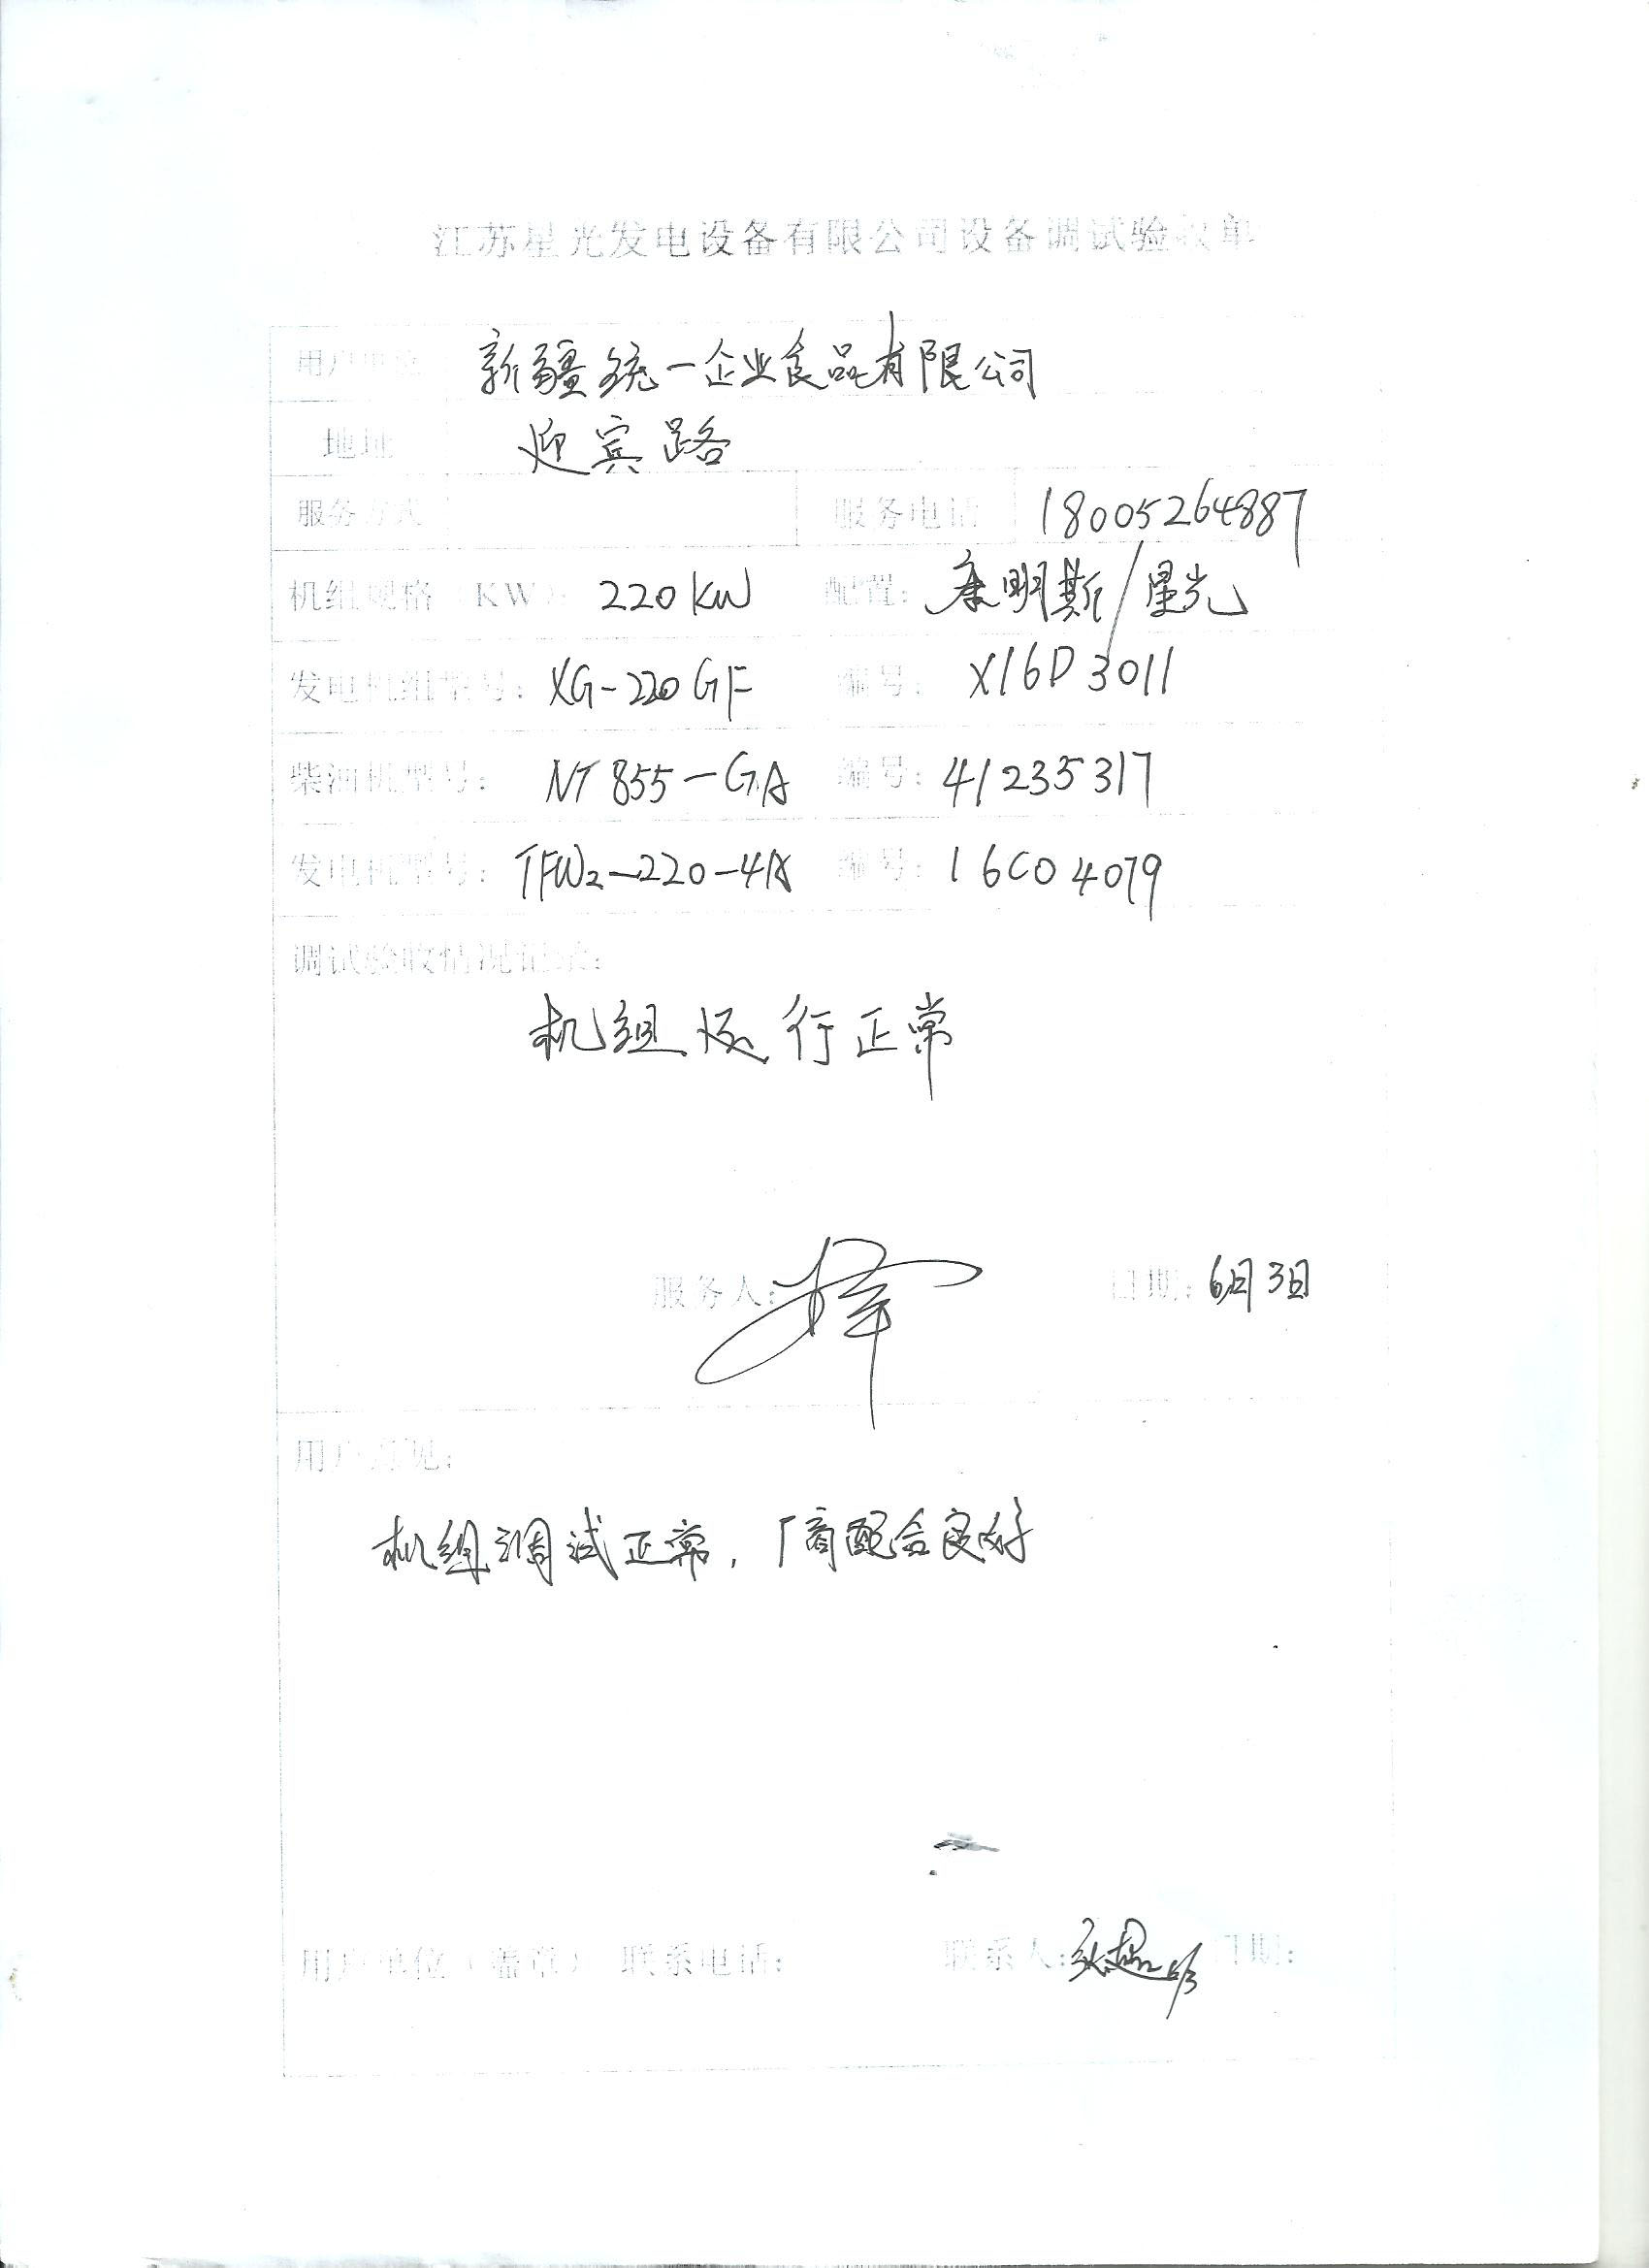 江苏星光发电设备有限公司设备调试验收单
用户单位 新疆统一企业食品有限公司
地址 迎宾路
服务方式 服务电话 18005264887
机组规格（KW）： 220KW 配置：康明斯/星光
发电机组型号：XG-220GF 编号：X16D3011
柴油机型号： NT855-GA 编号：41235317
发电机型号：TFW2-220-4A 编号：16C04079
调试验收情况记录：
机组运行正常
服务人： 日期：6月3日
用户意见：
机组调试正常，厂商配合良好
用户单位（盖章） 联系电话： 联系人： 6/3 日期：